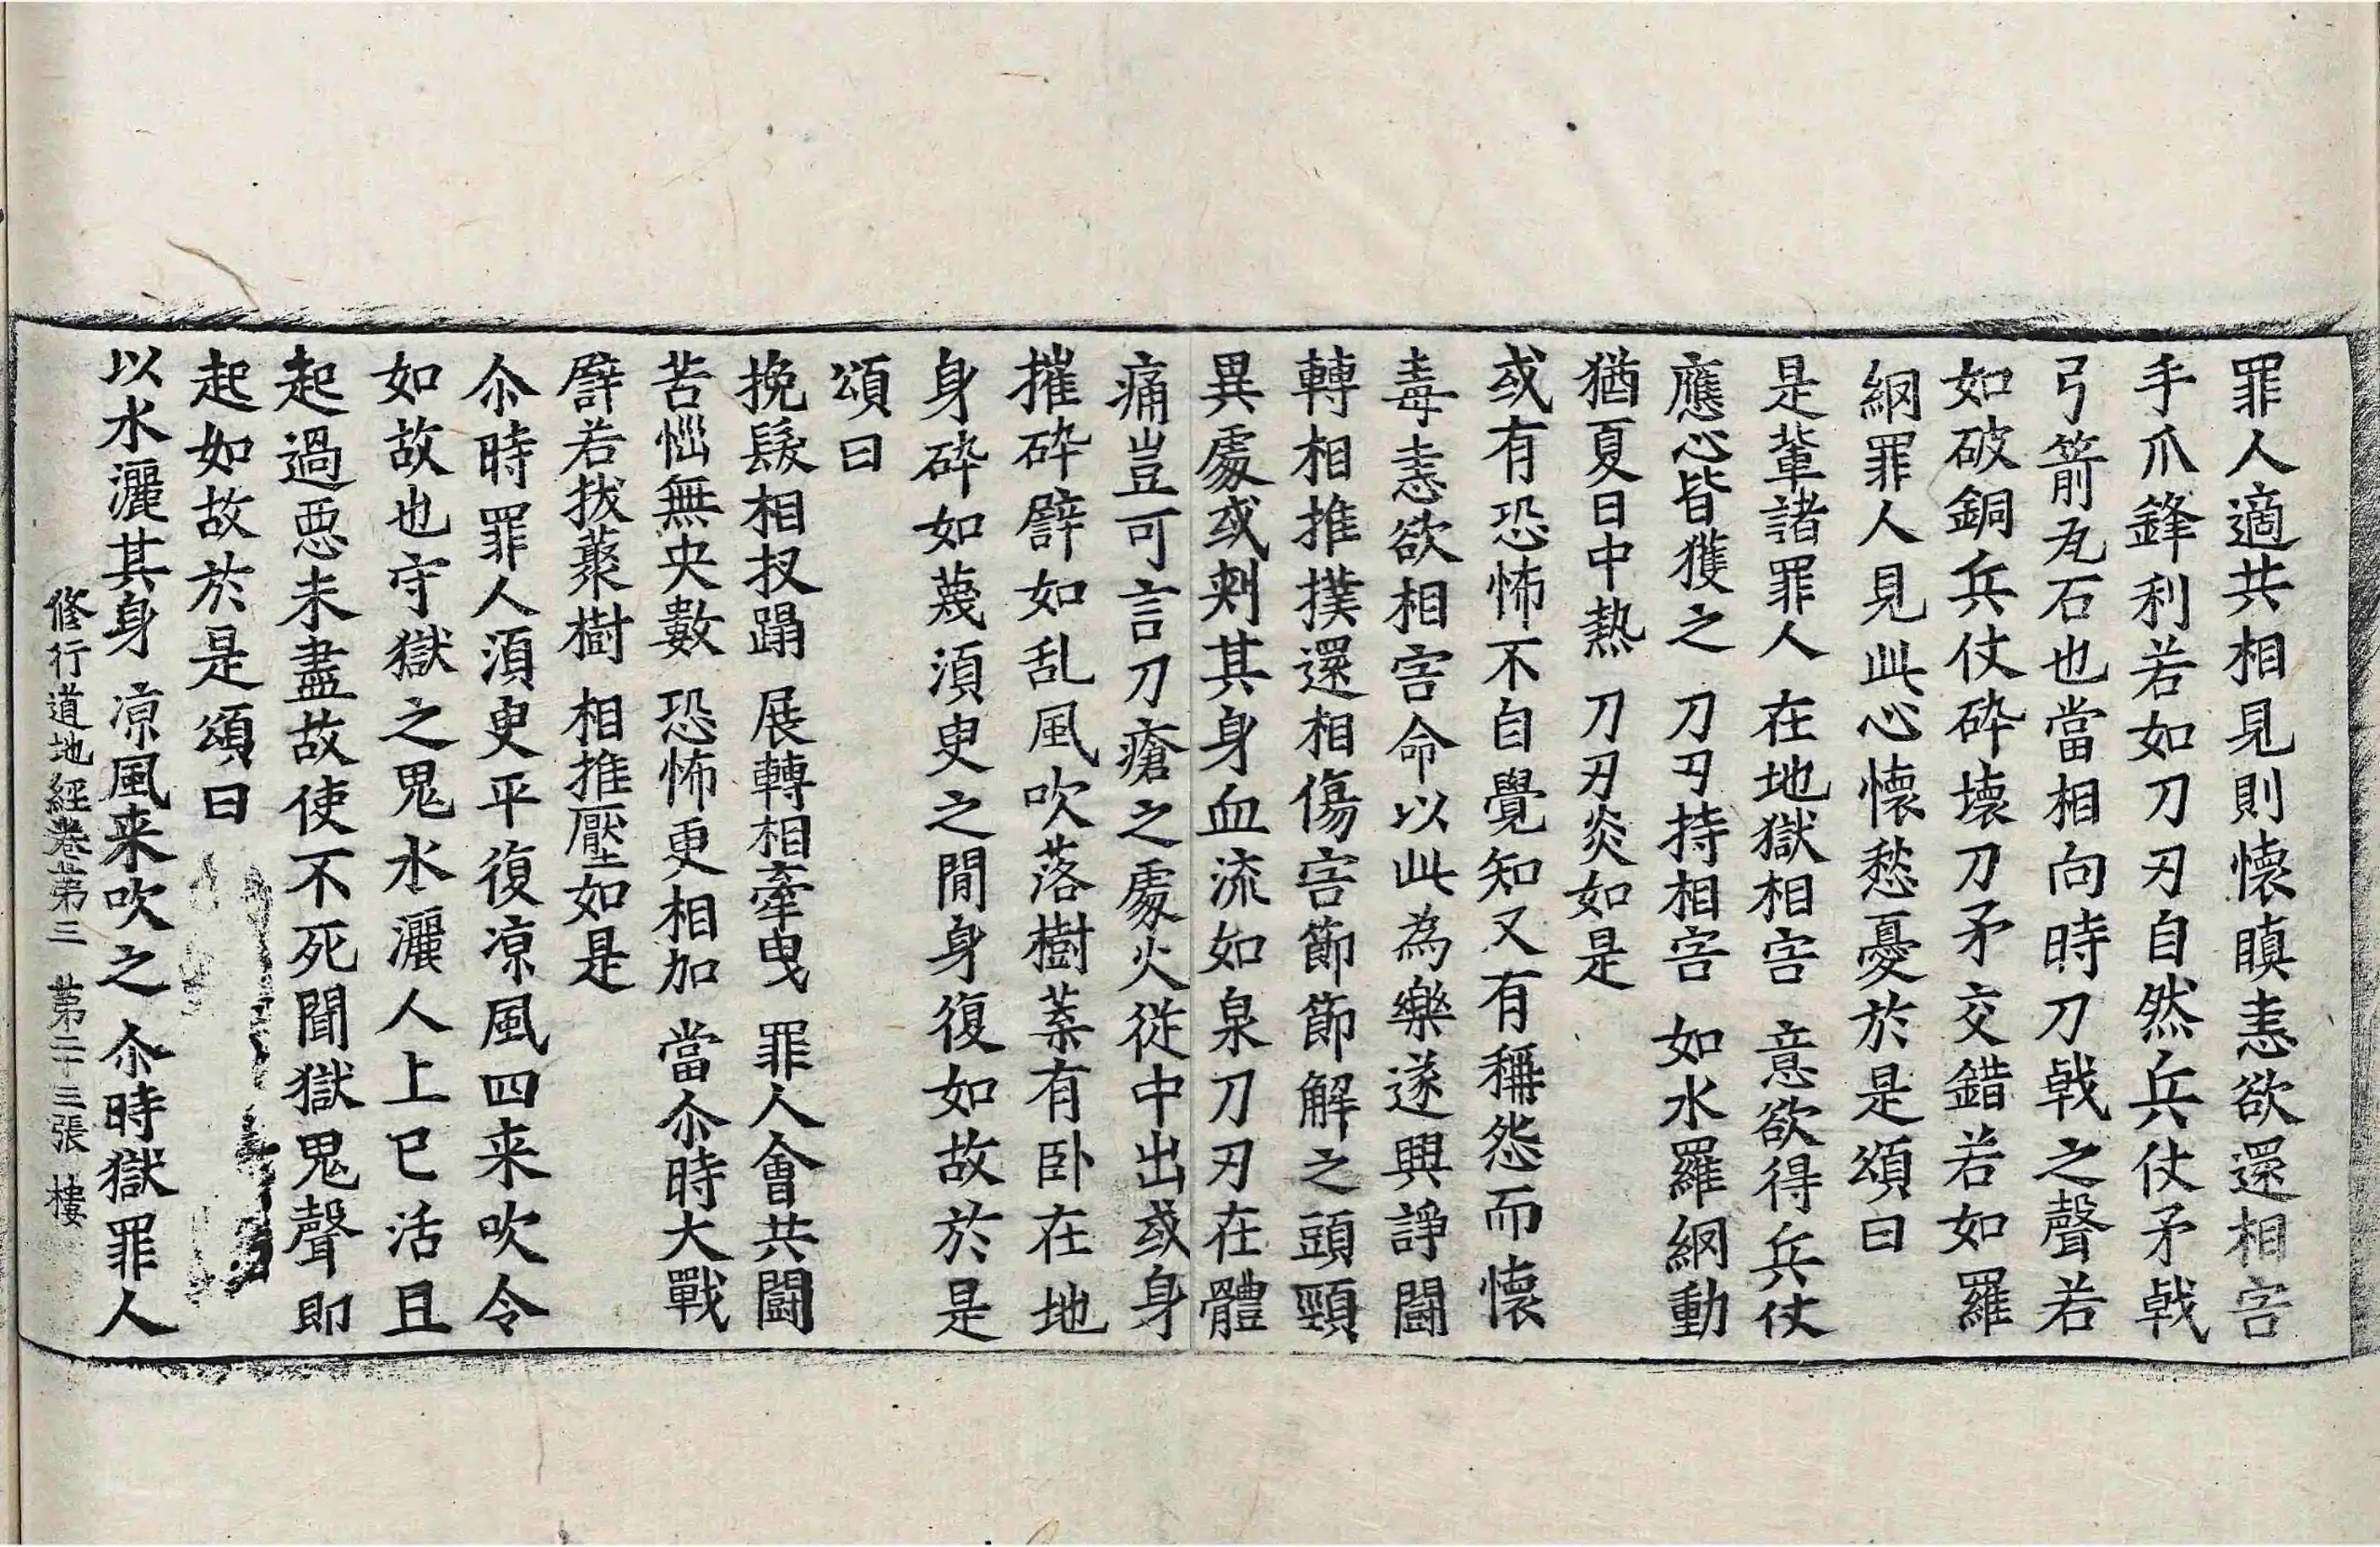 罪人適共相見則懷瞋恚欲還相害
手爪鋒利若如刀刃自然兵仗矛戟
弓箭瓦石也當相向時刀戟之聲若
如破銅兵仗碎壞刀矛交錯若如羅
網罪人見此心懷愁憂於是頌曰
是輩諸罪人 在地獄相害 意欲得兵仗
應心皆獲之 刀刃持相害 如水羅網動
猶夏日中熱 刀刃炎如是
或有恐怖不自覺知又有稱怨而懷
毒恚欲相害命以此為樂遂興諍鬪
轉相推撲還相傷害節節解之頭頸
異處或刾其身血流如泉刀刃在體
痛豈可言刀瘡之處火從中出或身
摧碎譬如乱風吹落樹葉有卧在地
身碎如蔑須臾之閒身復如故於是
頌曰
挽髮相扠蹋 展轉相牽曳 罪人會共鬪
苦惱無央數 恐怖更相加 當尒時大戰
譬若拔藂樹 相推壓如是
尒時罪人須臾平復涼風四来吹令
如故也守獄之鬼水灑人上已活且
起過惡未盡故使不死聞獄鬼聲即
起如故於是頌曰
以水灑其身 涼風来吹之 尒時獄罪人
修行道地經卷第三 第二十三張 樓